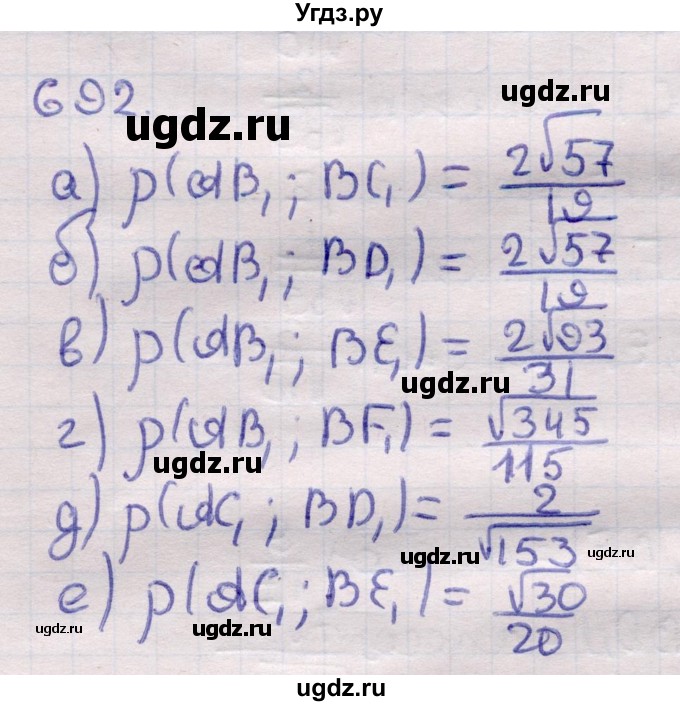 Угдз.ру
692.
ugdz.ru
ugdz.ru
а) p(AB₁; BC₁) = 2√57/19
б) p(AB₁; BD₁) = 2√57/19
в) p(AB₁; BE₁) = 2√93/31
ugdz.ru
г) p(AB₁; BF₁) = √345/115
ugdz.ru
д) p(AC₁; BD₁) = 2/√153
ugdz.ru
ugdz.ru
е) p(AC₁; BE₁) = √30/20
ugdz.ru
ugdz.ru
ugdz.ru